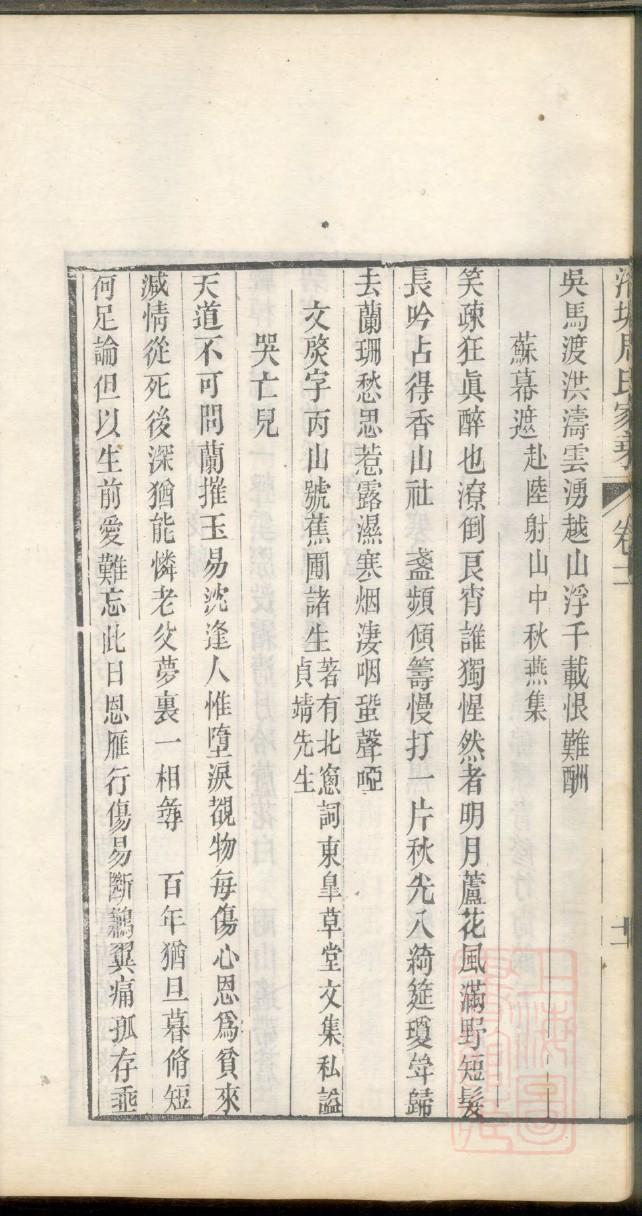 周氏家
吳馬渡洪濤雲湧越山浮千載恨難酬
蘇幕遮赴陸射山中秋燕集
笑疎狂眞醉也潦倒良宵誰獨惺然者明月蘆花風滿野短髮
長吟占得香山社　盞頻傾籌慢打一片秋光入綺筵瓊斝歸
去蘭珊愁思惹露濕寒烟淒咽蛩聲啞
文棨字丙山號蕉圃諸生著有北窻詞東皐草堂文集私謚貞靖先生
哭亡兒
天道不可問蘭摧玉易沈逢人惟墮淚覩物每傷心恩爲貧來
減情從死後深猶能憐老父夢裏一相尋　百年猶旦暮脩短
何足論但以生前愛難忘此日恩雁行傷易斷鶺翼痛孤存垂